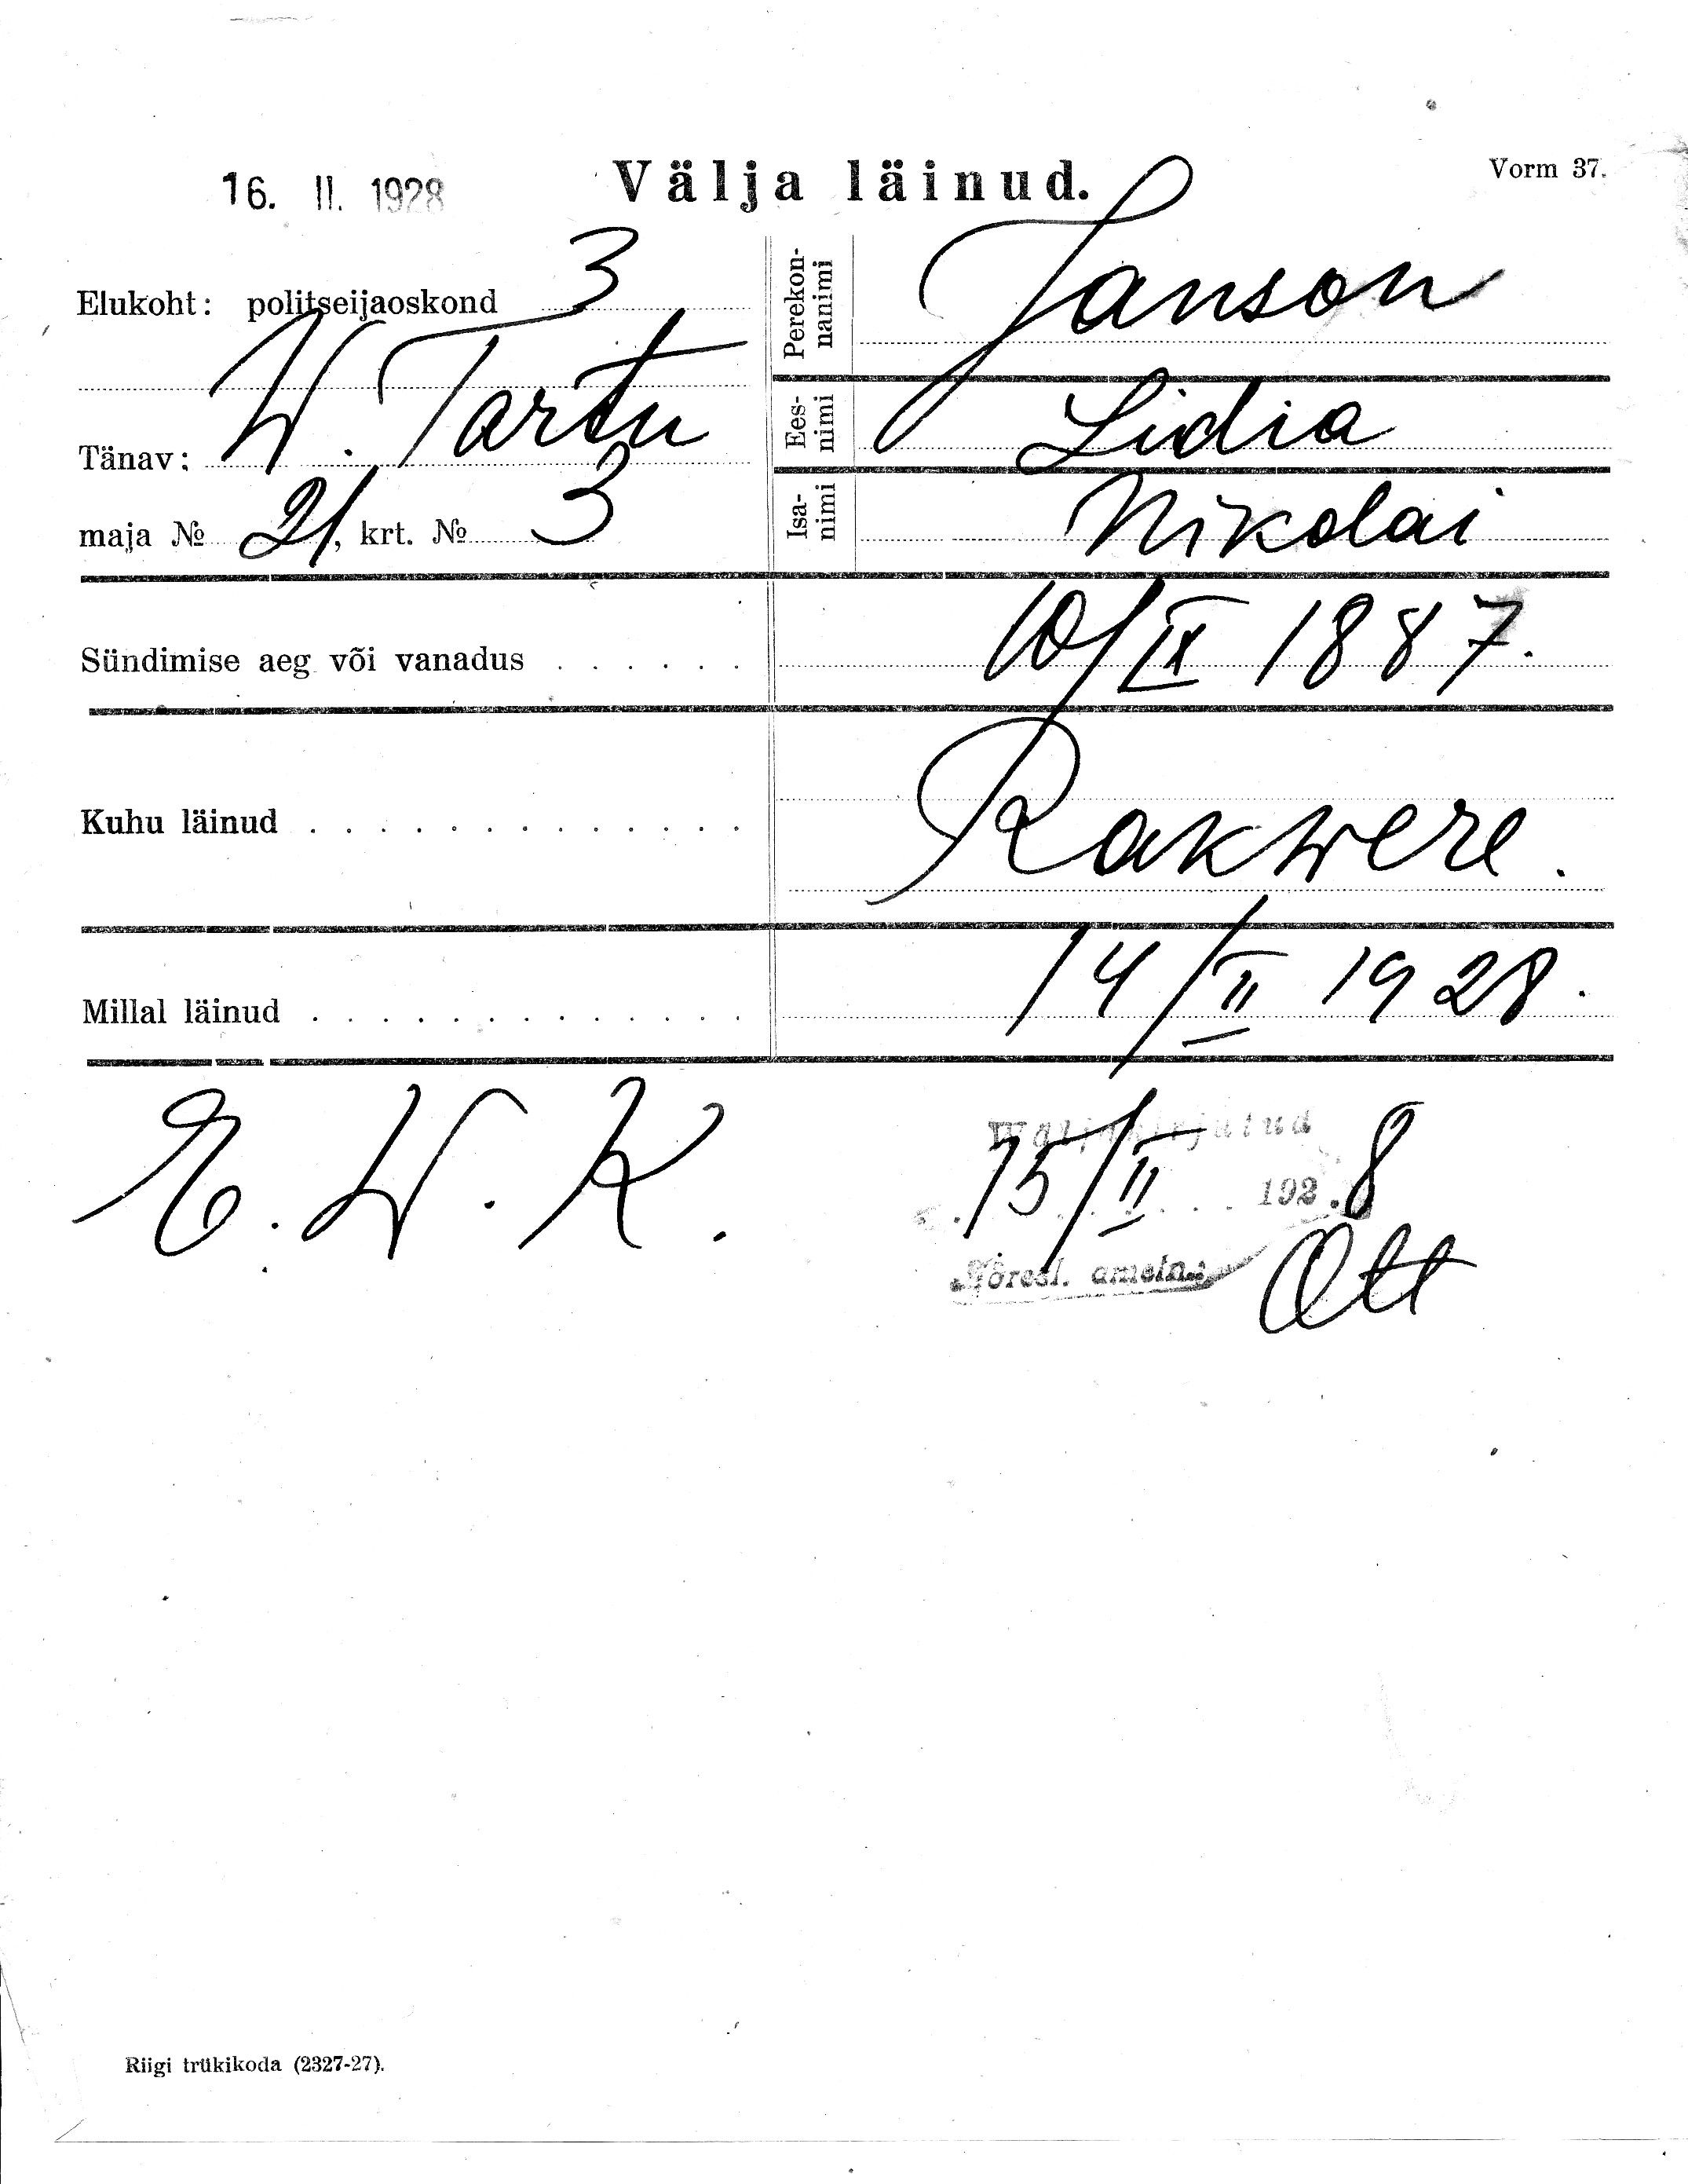 16. II. 1928
Välja läinud.
Vorm 37.
Elukoht: politseijaoskond 3
Tänav: W. Tartu
maja № 21, krt. № 3
Perekon-
nanimi
Janson
Ees-
nimi
Lidia
Isa-
nimi
Nikolai
Sündimise aeg või vanadus . . . . . . 10/IX 1887.
Kuhu läinud . . . . . . . . . . . . . Rakwere.
Millal läinud . . . . . . . . . . . . . 14/II 1928.
E. W. K.
Wäljakirjutud
15/II 192.8
Ott
Riigi trükikoda (2327-27).